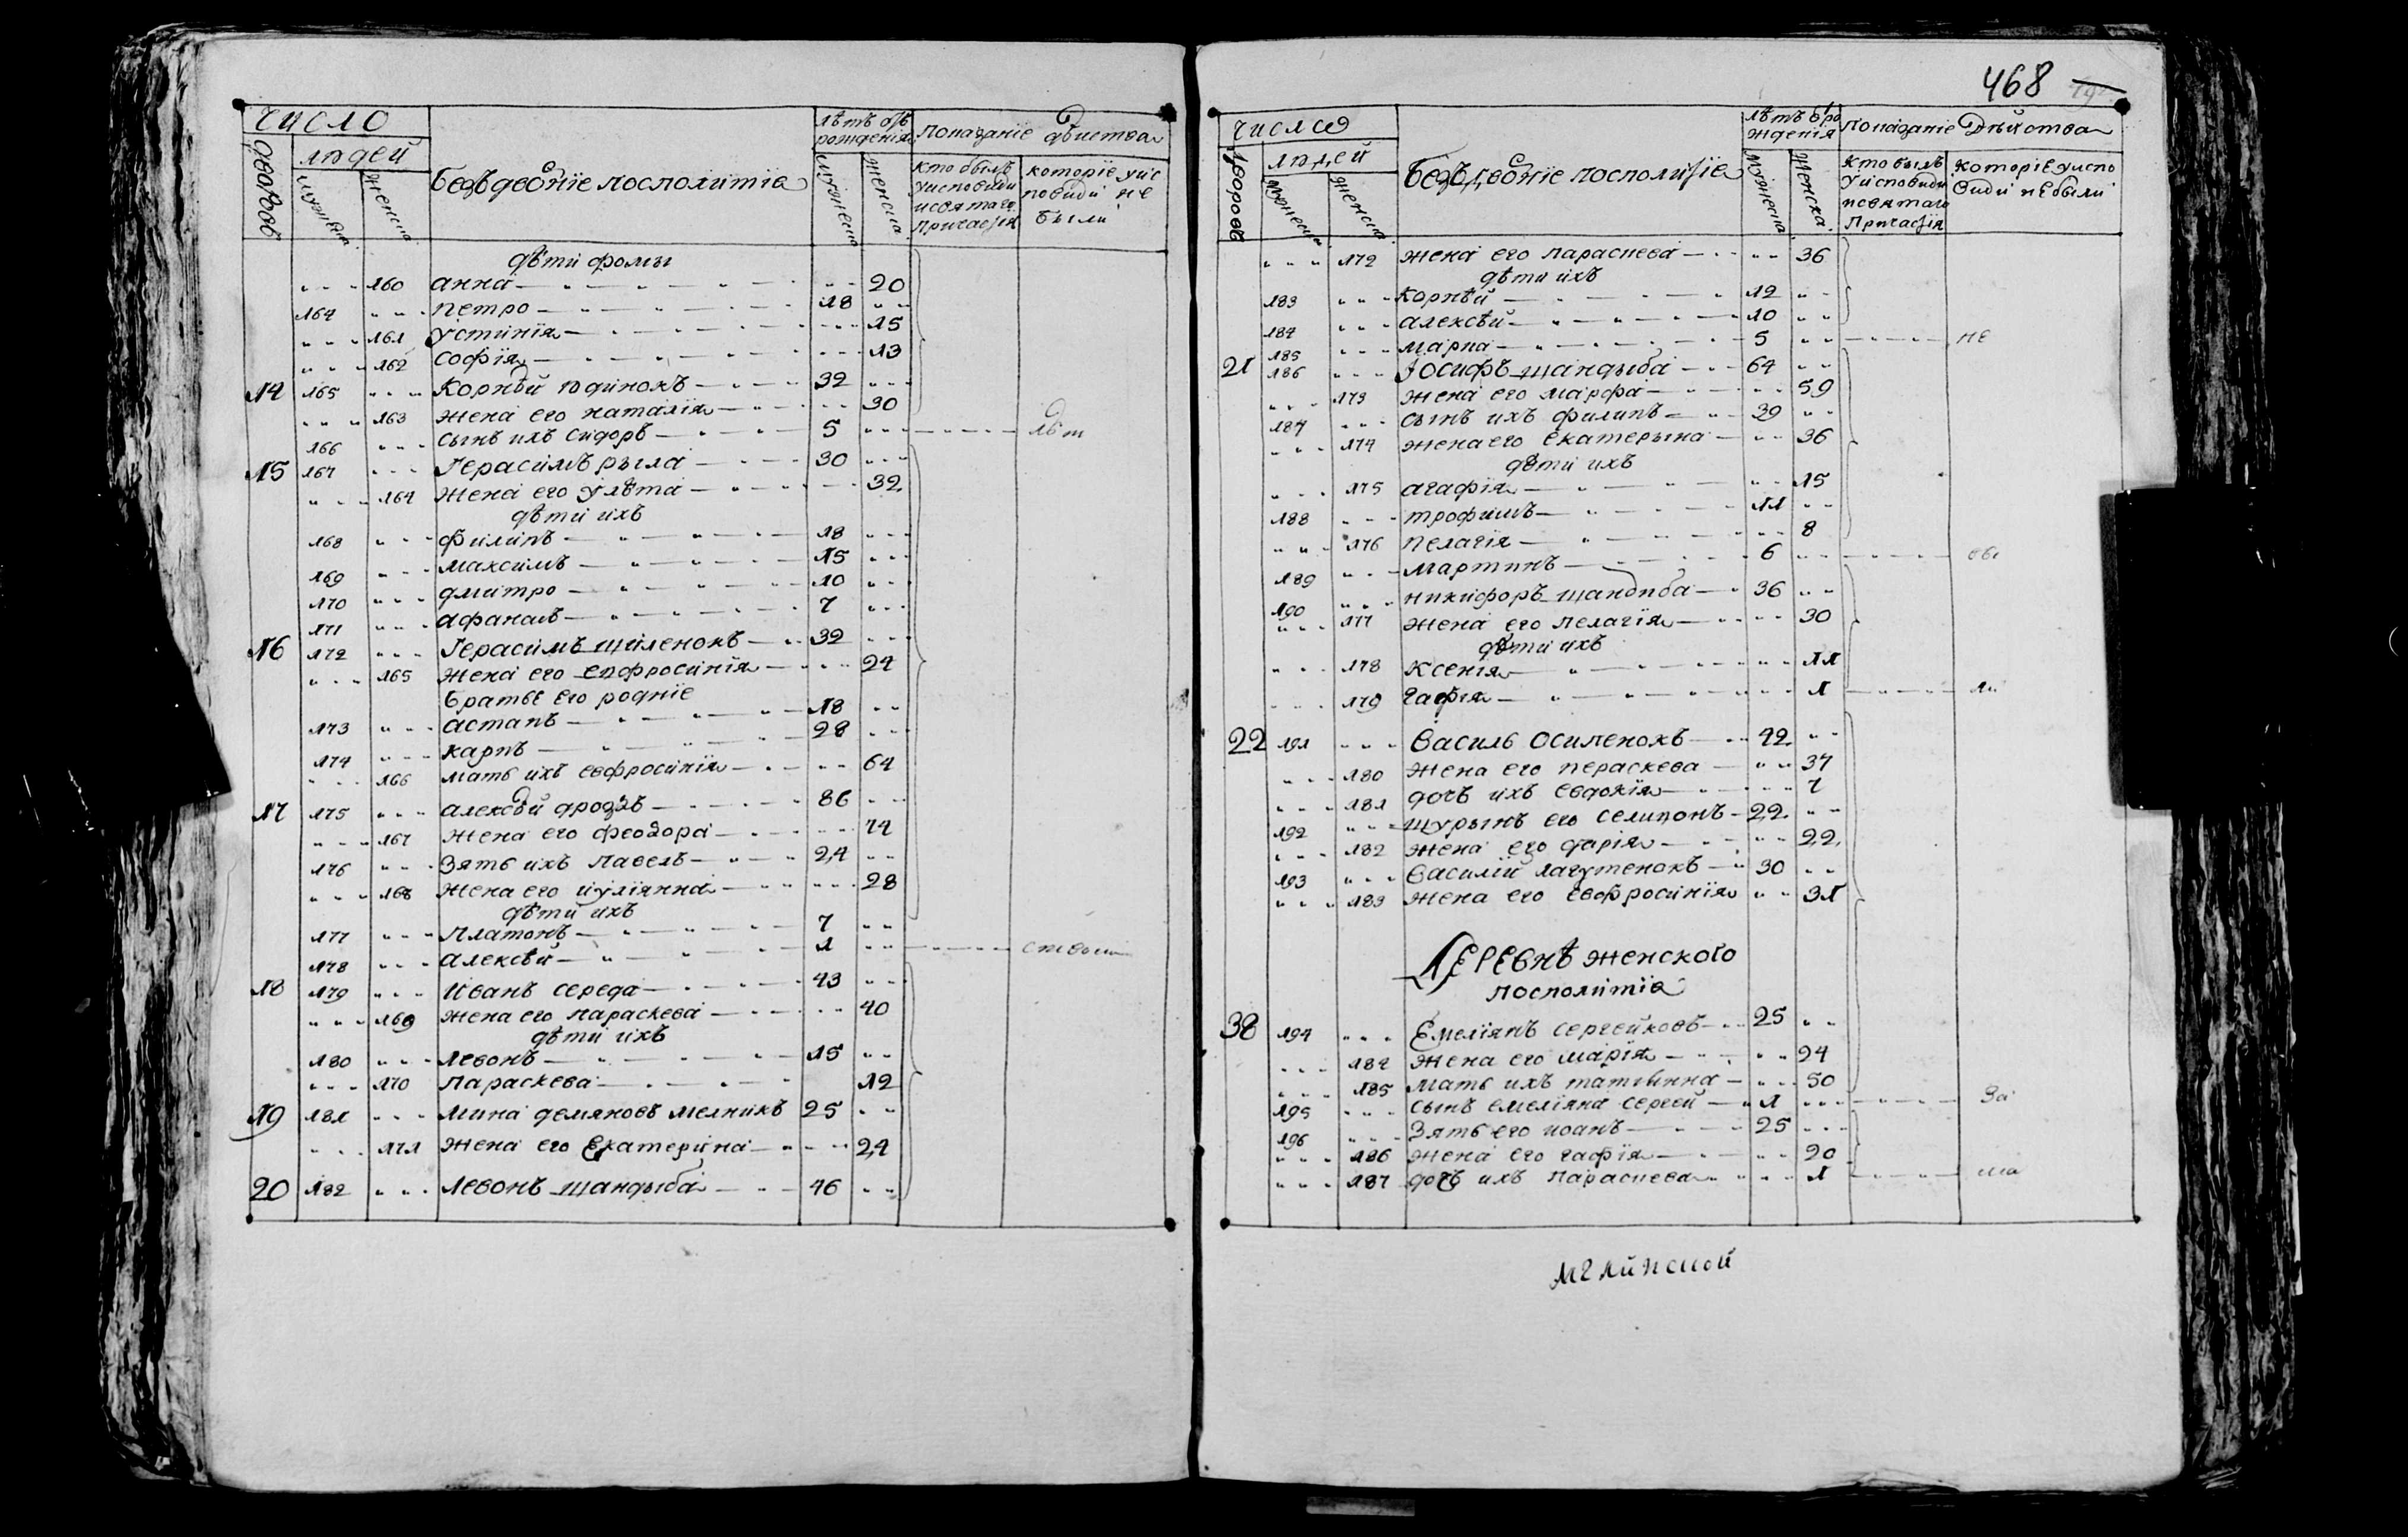 468
число
дворовъ
людей
мужеска
женска
безъдворніе посполитіе
лѣтъ отъ рожденія
мужеска
женска
показаніе дѣиства
кто былъ уисповиди исвятаго причастія
которіе уис повиди не были
дѣти фомы
160 анна 20
164 петро 18
161 устинія 15
162 софія 13
14 165 Корнѣй юдинокъ 32
163 жена его наталія 30
166 сынъ ихъ сидоръ 5 лѣт
15 167 Герасимъ рыла 30
164 жена его улѣта 32
дѣти ихъ
168 филипъ 18
169 максимъ 15
170 дмитро 10
171 афанасъ 7
16 172 Герасимъ шиленокъ 32
165 жена его епфросинія 24
братье его родніе
173 астапъ 18
174 карпъ 28
166 мать ихъ евфросинія 64
17 175 алексѣй дроздъ 86
167 жена его феодора 74
176 зять ихъ павелъ 24
168 жена его иуліянна 28
дѣти ихъ
177 платонъ 7
178 алексѣй 1
18 179 иванъ середа 43
169 жена его параскева 40
дѣти ихъ
180 левонъ 15
170 параскева 12
19 181 мина демяновъ мелникъ 25
171 жена его Екатерина 24
20 182 левонъ шандыба 46
число
дворовъ
людей
мужеска
женска
безъдворніе посполитіе
лѣтъ отъ рожденія
мужеска
женска
показаніе дѣйства
кто былъ уисповиди исвятаго причастія
которіе уиспо види не были
172 жена его параскева 36
дѣти ихъ
183 корнѣй 12
184 алексѣй 10
185 марка 5 не
21 186 Іосифъ шандыба 64
173 жена его марфа 59
187 сынъ ихъ филипъ 39
174 жена его екатерына 36
дѣти ихъ
175 агафія 15
188 трофимъ 11
176 пелагія 8
189 мартинъ 6
190 никифоръ шандиба 36
177 жена его пелагія 30
дѣти ихъ
178 ксенія 11
179 гафія 1 ли
22 191 василь осипенокъ 42
180 жена его пераскева 37
181 дочъ ихъ евдокія 7
192 шурынъ его селивонъ 22
182 жена его дарія 22
193 василій лагутенокъ 30
183 жена его евфросинія 31
Деревнѣ женского
посполитіе
38 194 Емеліянъ сергейковъ 25
184 жена его марія 24
185 мать ихъ татіянна 50
195 сынъ емеліяна сергей 1 за
196 зять его иоанъ 25
186 жена его гафія 20
187 дочъ ихъ параскева 1
мглинской